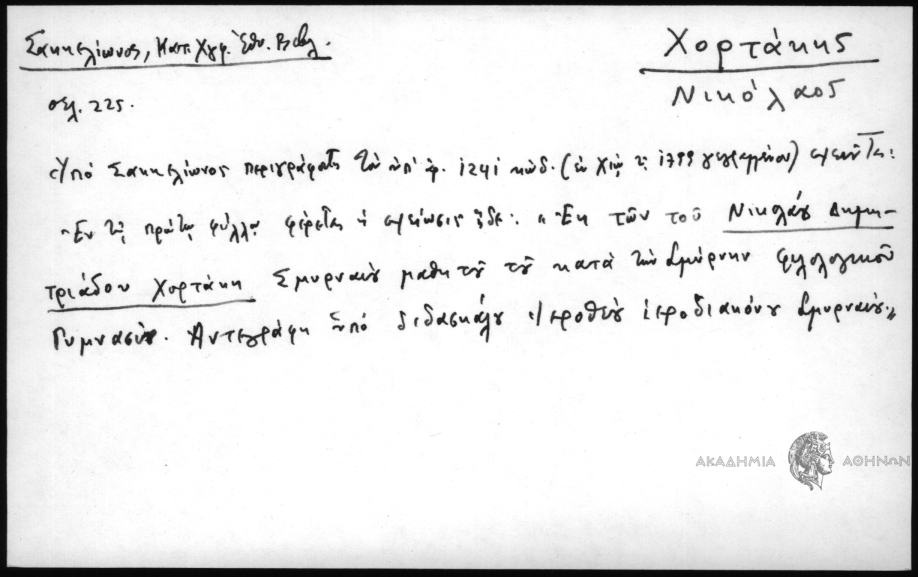 Σακκελίωνος, Κατ. Χγφ. Ἐθν. Βιβλ.
Χορτάκης
Νικόλαος
σελ. 225.
Ὑπὸ Σακκελίωνος περιγράφοντος τὸν ὑπ' ἀρ. 1241 κώδ. (ἐν Χίῳ τῷ 1799 γεγραμμένον)
"Ἐν τῷ πρώτῳ φύλλῳ φέρεται ἡ σημείωσις ἥδε: "Ἐκ τῶν τοῦ Νικολάου Δημη-
τριάδου Χορτάκη Σμυρναίου μαθητοῦ τοῦ κατὰ τὴν Σμύρνην φιλολογικοῦ
Γυμνασίου. Ἀντεγράφη ὑπὸ διδασκάλου Ἱεροθέου ἱεροδιακόνου Σμυρναίου."
ΑΚΑΔΗΜΙΑ ΑΘΗΝΩΝ